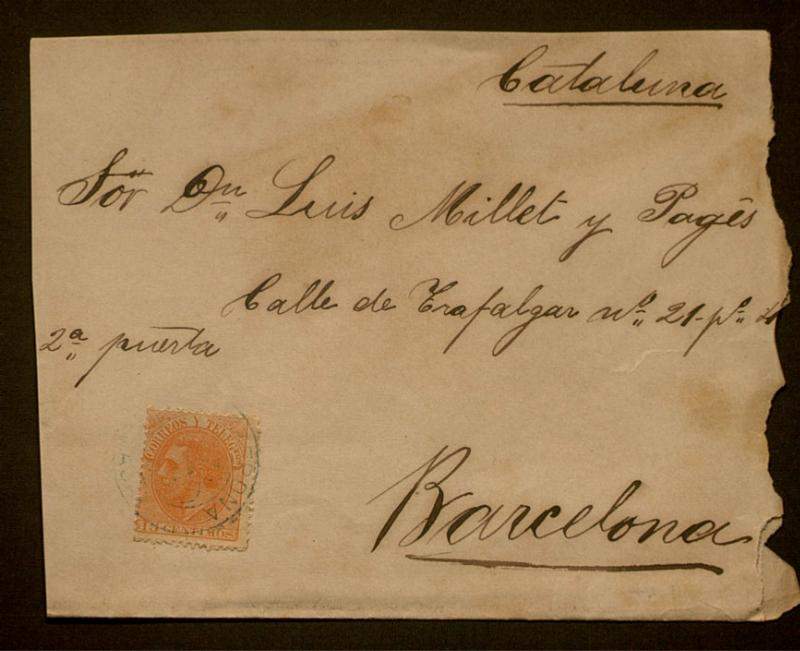 Cataluna
Sor Dn Luis Millet y Pagés
Calle de Trafalgar nº 21-pº
2ª puerta
Barcelona
CORREOS Y TELEGFOS
15 CENTIMOS